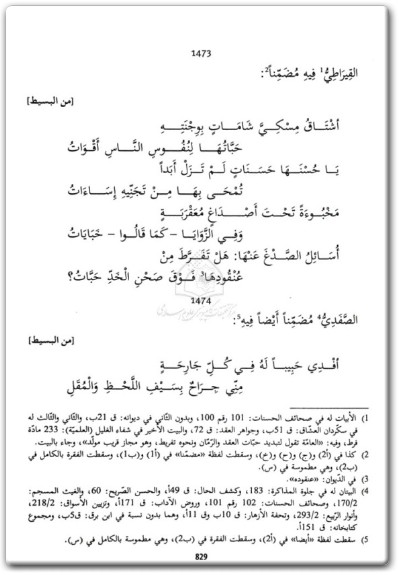 1473
القِيرَاطِيُّ¹ فِيهِ مُضَمِّناً²:
[من البسيط]
اشْتَاقُ مِسْكِيَّ شَامَاتٍ بِوِجْنَتِهِ
حَبَّاتُهَا لِنُفُوسِ النَّاسِ أَقْوَاتُ
يَا حُسْنَهَا حَسَنَاتٍ لَمْ تَزَلْ أَبَداً
تُمْحَى بِهَا مِنْ تَجَنِّيهِ إِسَاءَاتُ
مَخْبُوءَةً تَحْتَ أَصْدَاغٍ مُعَقْرَبَةٍ
وَفِي الزَّوَايَا – كَمَا قَالُوا – خَبَايَاتُ
أُسَائِلُ الصُّدْغَ عَنْهَا: هَلْ تَفَرَّطَ مِنْ
عُنْقُودِهَا³ فَوْقَ صَحْنِ الْخَدِّ حَبَّاتُ؟
1474
الصَّفَدِيُّ⁴ مُضَمِّناً أَيْضاً فِيهِ⁵:
[من البسيط]
أَفْدِي حَبِيباً لَهُ فِي كُلِّ جَارِحَةٍ
مِنِّي جِرَاحٌ بِسَيْفِ اللَّحْظِ وَالْمُقَلِ
1) الأبيات له في صحائف الحسنات: 101 رقم 100، وبدون الثّاني في ديوانه: ق 21ب، والثّاني والثّالث له
في سكّردان العشّاق: ق 51ب، وجواهر العقد: ق 72، والبيت الأخير في شفاء الغليل (العلميّة): 233 مادّة
فرط، وفيه: «العامّة تقول لتبديد حبّات العقد والرّمّان ونحوه تفريط، وهو مجاز قريب مولّد»، وجاء بالبيت.
2) كذا في (أ2) و(ج) و(ح) و(خ)، وسقطت لفظة «مضمّنا» في (أ1) و(ب1)، وسقطت الفقرة بالكامل في
(ب2)، وهي مطموسة في (س).
3) في الدّيوان: «عنقوده».
4) البيتان له في جلوة المذاكرة: 183، وكشف الحال: ق 49أ، والحسن الصّريح: 60، والغيث المسجم:
170/2، وصحائف الحسنات: 102 رقم 101، وروض الآداب: ق 171أ، وتزيين الأسواق: 218/2،
وأنوار الرّبيع: 293/2، وتحفة الأزهار: ق 10ب وق 11أ، وهما بدون نسبة في ابن برق: ق5ب، ومجموع
كتابخانه: ق 151أ.
5) سقطت لفظة «أيضا» في (أ2)، وسقطت الفقرة في (ب2)، وهي مطموسة بالكامل في (س).
829